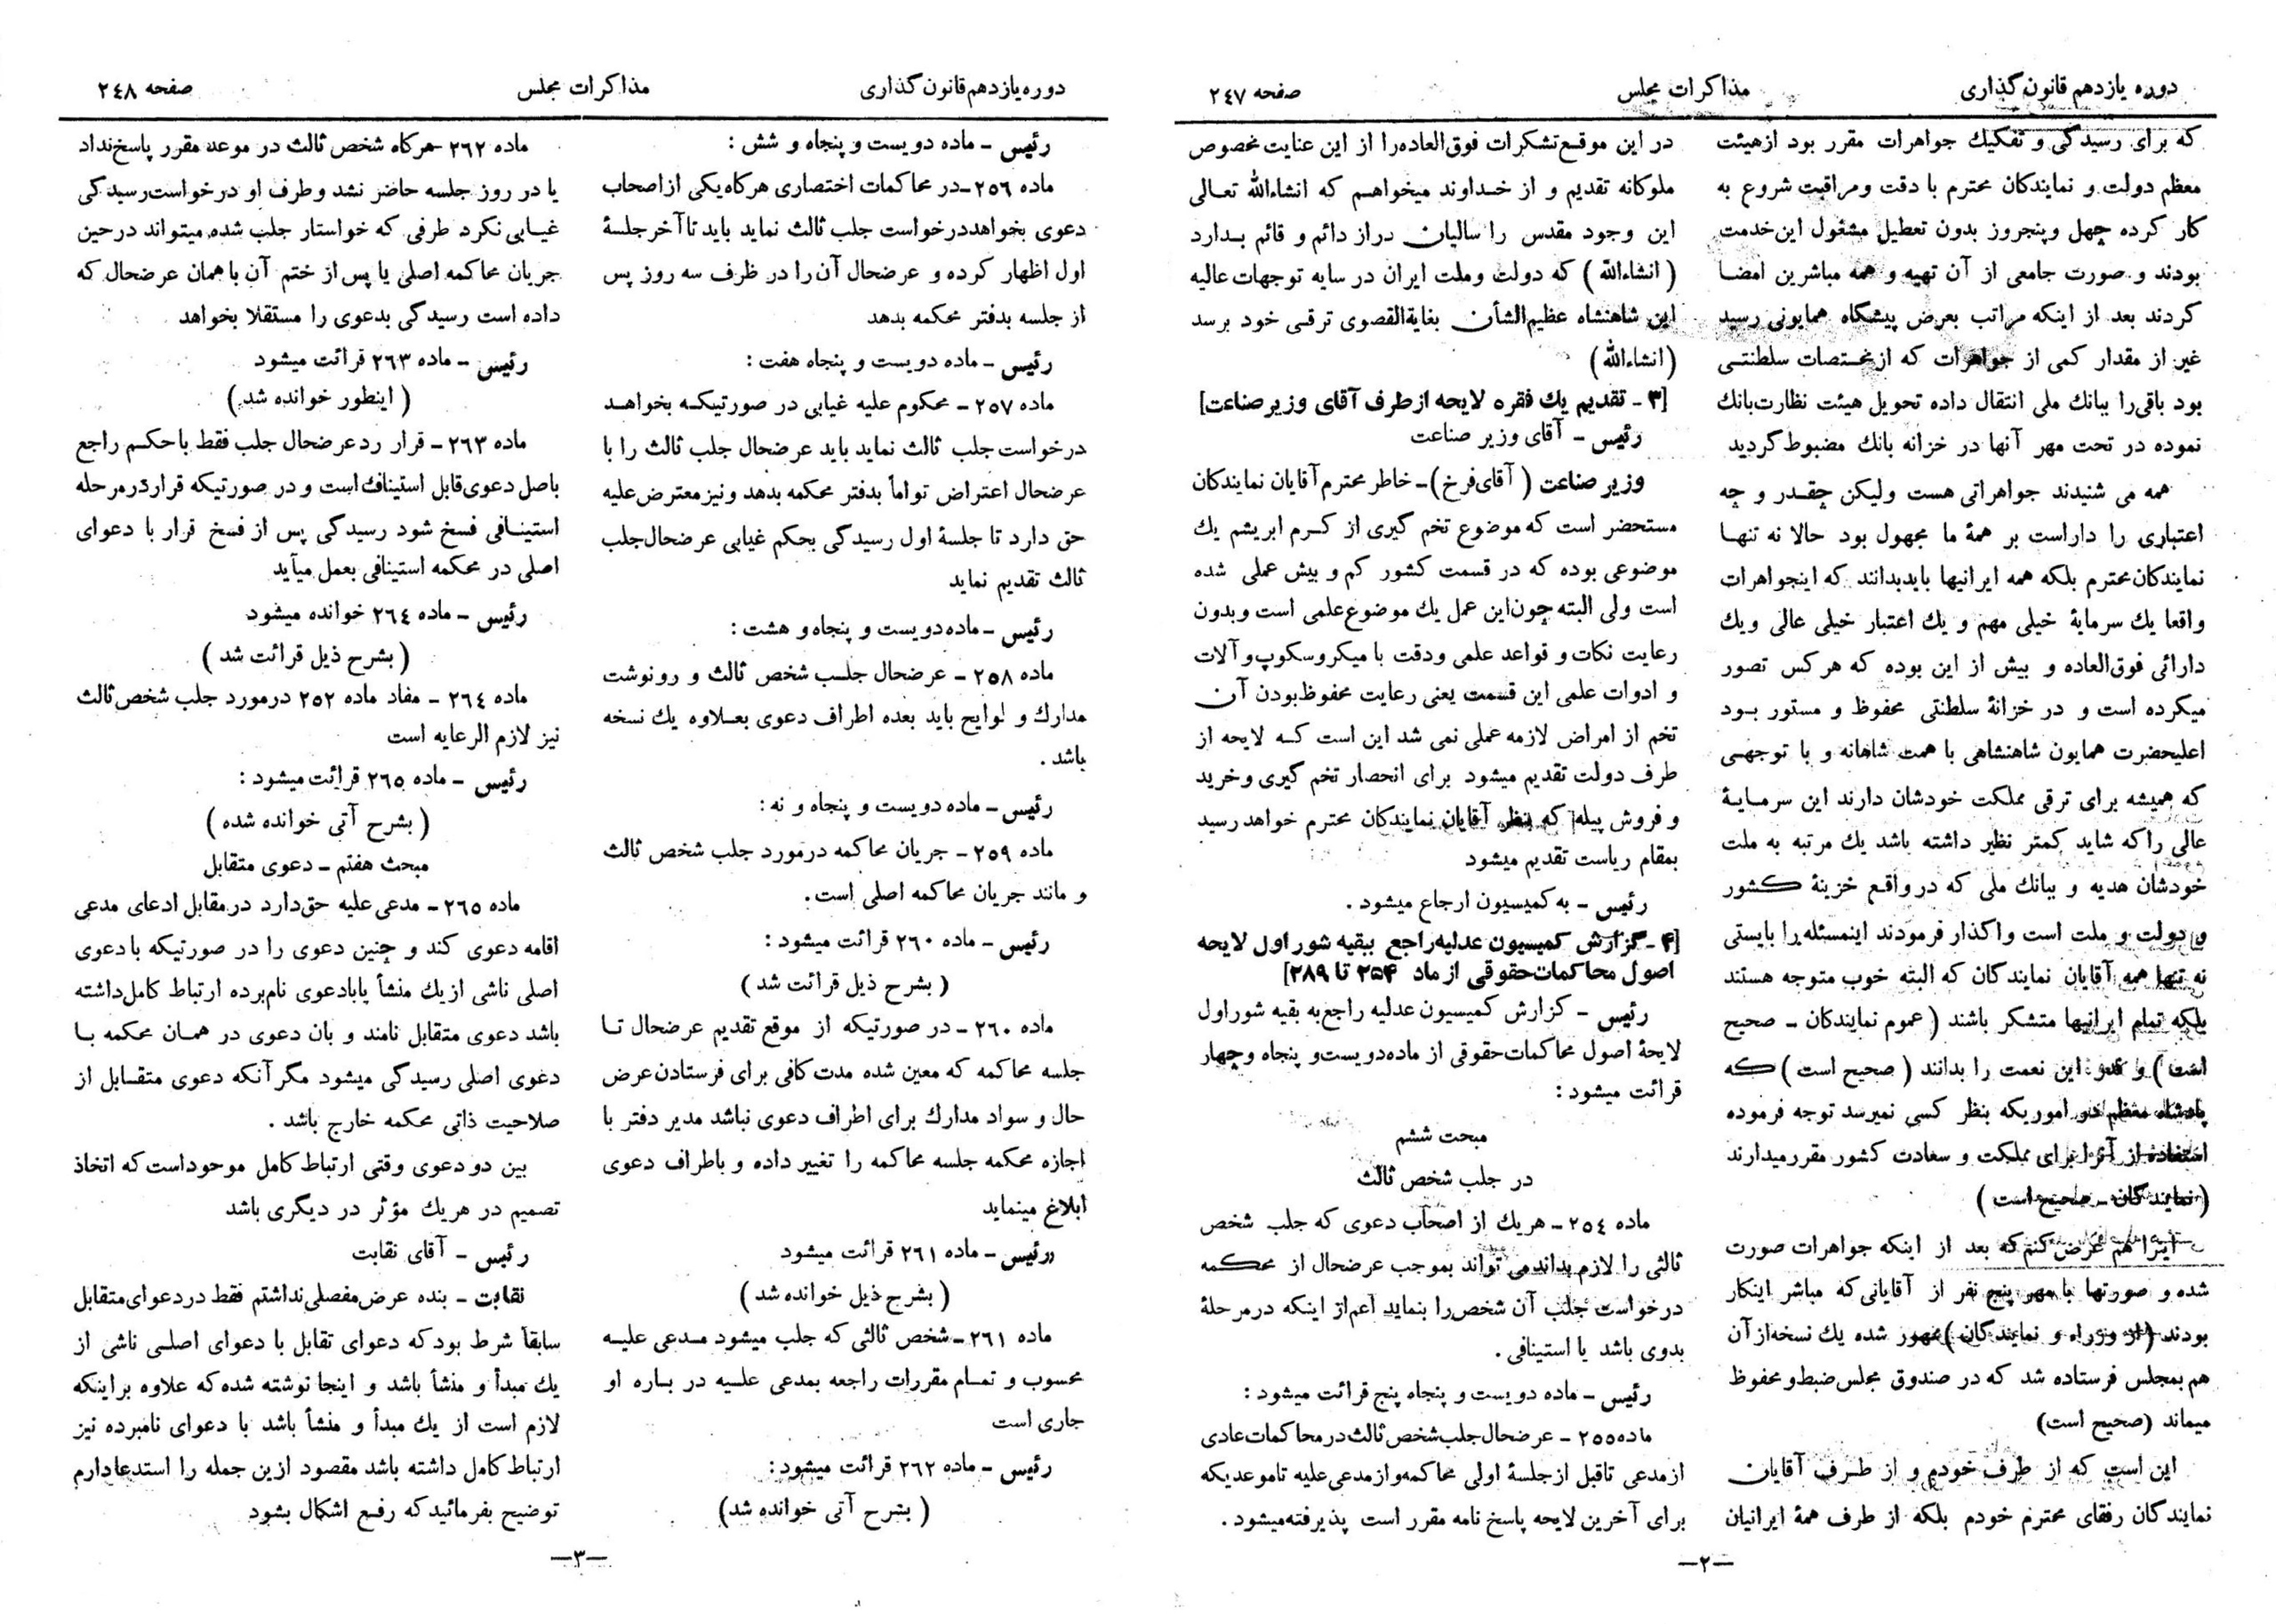 دوره یازدهم قانون گذاری
مذاکرات مجلس
صفحه ۲٤۷
که برای رسیدگی و تفکیک جواهرات مقرر بود ازهیئت
معظم دولت و نمایندکان محترم با دقت ومراقبت شروع به
کار کرده چهل وپنجروز بدون تعطیل مشغول این خدمت
بودند و صورت جامعی از آن تهیه و همه مباشرین امضا
کردند بعد از اینکه مراتب بعرض پیشگاه همایونی رسید
غیر از مقدار کمی از جواهرات که از مختصات سلطنتی
بود باقی را ببانك ملی انتقال داده تحویل هیئت نظارت بانك
نموده در تحت مهر آنها در خزانه بانك مضبوط گردید
همه می شنیدند جواهراتی هست ولیکن چقدر و چه
اعتباری را داراست بر همهٔ ما مجهول بود حالا نه تنها
نمایندکان محترم بلکه همه ایرانیها بایدبدانند که اینجواهرات
واقعا یك سرمایهٔ خیلی مهم و یك اعتبار خیلی عالی ویك
دارائی فوق‌العاده و بیش از این بوده که هرکس تصور
میکرده است و در خزانهٔ سلطنتی محفوظ و مستور بود
اعلیحضرت همایون شاهنشاهی با همت شاهانه و با توجهی
که همیشه برای ترقی مملکت خودشان دارند این سرمایهٔ
عالی راکه شاید کمتر نظیر داشته باشد یك مرتبه به ملت
خودشان هدیه و ببانك ملی که در واقع خزینهٔ کشور
و دولت و ملت است واکذار فرمودند اینمسئله را بایستی
نه تنها همه آقایان نمایندکان که البته خوب متوجه هستند
بلکه تمام ایرانیها متشکر باشند ( عموم نمایندکان - صحیح
است ) و قدر این نعمت را بدانند ( صحیح است ) که
پادشاه معظم در اموریکه بنظر کسی نمیرسد توجه فرموده
استفاده از آنرا برای مملکت و سعادت کشور مقررمیدارند
( نمایندکان - صحیح است )
اینرا هم عرض کنم که بعد از اینکه جواهرات صورت
شده و صورتها با مهر پنج نفر از آقایانی که مباشر اینکار
بودند (از وزراء و نمایندکان) ممهور شده یك نسخه از آن
هم بمجلس فرستاده شد که در صندوق مجلس ضبط و محفوظ
میماند (صحیح است)
این است که از طرف خودم و از طرف آقایان
نمایندکان رفقای محترم خودم بلکه از طرف همهٔ ایرانیان
در این موقع تشکرات فوق‌العاده‌را از این عنایت مخصوص
ملوکانه تقدیم و از خداوند میخواهم که انشاءالله تعالی
این وجود مقدس را سالیان دراز دائم و قائم بدارد
( انشاءالله ) که دولت وملت ایران در سایه توجهات عالیه
این شاهنشاه عظیم‌الشأن بغایةالقصوی ترقی خود برسد
(انشاءالله)
[۳ ـ تقدیم یك فقره لایحه ازطرف آقای وزیرصناعت]
رئیس - آقای وزیر صناعت
وزیر صناعت ( آقای فرخ ) - خاطر محترم آقایان نمایندکان
مستحضر است که موضوع تخم گیری از کرم ابریشم یك
موضوعی بوده که در قسمت کشور کم و بیش عملی شده
است ولی البته چون‌این عمل یك موضوع علمی است وبدون
رعایت نکات و قواعد علمی ودقت با میکروسکوپ و آلات
و ادوات علمی این قسمت یعنی رعایت محفوظ بودن آن
تخم از امراض لازمه عملی نمی شد این است که لایحه از
طرف دولت تقدیم میشود برای انحصار تخم گیری وخرید
و فروش پیله که بنظر آقایان نمایندکان محترم خواهد رسید
بمقام ریاست تقدیم میشود
رئیس - به کمیسیون ارجاع میشود .
[۴ - گزارش کمیسیون عدلیه‌راجع ببقیه شور اول لایحه
اصول محاکمات‌حقوقی از ماد ۲۵۴ تا ۲۸۹]
رئیس - گزارش کمیسیون عدلیه راجع به بقیه شور اول
لایحهٔ اصول محاکمات‌حقوقی از ماده‌دویست‌و پنجاه وچهار
قرائت میشود :
مبحث ششم
در جلب شخص ثالث
ماده ۲٥٤ - هریك از اصحاب دعوی که جلب شخص
ثالثی را لازم بداندمی تواند بموجب عرضحال از محکمه
درخواست جلب آن شخص‌را بنماید اعم از اینکه درمرحلهٔ
بدوی باشد یا استینافی .
رئیس - ماده دویست و پنجاه پنج قرائت میشود :
ماده ۲٥٥ - عرضحال جلب شخص ثالث در محاکمات‌عادی
ازمدعی تاقبل از جلسهٔ اولی محاکمه‌واز مدعی علیه تاموعدیکه
برای آخرین لایحه پاسخ نامه مقرر است پذیرفته‌میشود .
—۲—
دوره یازدهم قانون گذاری
مذاکرات مجلس
صفحه ۲٤۸
رئیس - ماده دویست و پنجاه و شش :
ماده ۲٥٦ - در محاکمات اختصاری هرکاه یکی از اصحاب
دعوی بخواهد درخواست جلب ثالث نماید باید تا آخر جلسهٔ
اول اظهار کرده و عرضحال آن را در ظرف سه روز پس
از جلسه بدفتر محکمه بدهد
رئیس - ماده دویست و پنجاه هفت :
ماده ۲٥۷ - محکوم علیه غیابی در صورتیکه بخواهد
درخواست جلب ثالث نماید باید عرضحال جلب ثالث را با
عرضحال اعتراض تواماً بدفتر محکمه بدهد و نیز معترض‌علیه
حق دارد تا جلسهٔ اول رسیدگی بحکم غیابی عرضحال جلب
ثالث تقدیم نماید
رئیس - ماده دویست و پنجاه و هشت :
ماده ۲٥۸ - عرضحال جلب شخص ثالث و رونوشت
مدارك و لوایح باید بعده اطراف دعوی بعلاوه یك نسخه
باشد .
رئیس - ماده دویست و پنجاه و نه :
ماده ۲٥۹ - جریان محاکمه درمورد جلب شخص ثالث
و مانند جریان محاکمه اصلی است .
رئیس - ماده ۲٦۰ قرائت میشود :
( بشرح ذیل قرائت شد )
ماده ۲٦۰ - در صورتیکه از موقع تقدیم عرضحال تا
جلسه محاکمه که معین شده مدت کافی برای فرستادن عرض
حال و سواد مدارك برای اطراف دعوی نباشد مدیر دفتر با
اجازه محکمه جلسه محاکمه را تغییر داده و باطراف دعوی
ابلاغ مینماید
رئیس - ماده ۲٦۱ قرائت میشود
( بشرح ذیل خوانده شد )
ماده ۲٦۱ - شخص ثالثی که جلب میشود مدعی علیه
محسوب و تمام مقررات راجعه بمدعی علیه در باره او
جاری است
رئیس - ماده ۲٦۲ قرائت میشود :
( بشرح آتی خوانده شد )
ماده ۲٦۲ - هرکاه شخص ثالث در موعد مقرر پاسخ نداد
یا در روز جلسه حاضر نشد وطرف او درخواست رسیدگی
غیابی نکرد طرفی که خواستار جلب شده میتواند در حین
جریان محاکمه اصلی یا پس از ختم آن با همان عرضحال که
داده است رسیدگی بدعوی را مستقلا بخواهد
رئیس - ماده ۲٦۳ قرائت میشود
( اینطور خوانده شد )
ماده ۲٦۳ - قرار ردعرضحال جلب فقط با حکم راجع
باصل دعوی قابل استیناف است و در صورتیکه قراردرمرحله
استینافی فسخ شود رسیدگی پس از فسخ قرار با دعوای
اصلی در محکمه استینافی بعمل میآید
رئیس - ماده ۲٦٤ خوانده میشود
( بشرح ذیل قرائت شد )
ماده ۲٦٤ - مفاد ماده ۲٥۲ درمورد جلب شخص ثالث
نیز لازم الرعایه است
رئیس - ماده ۲٦٥ قرائت میشود :
( بشرح آتی خوانده شده )
مبحث هفتم - دعوی متقابل
ماده ۲٦٥ - مدعی علیه حق‌دارد در مقابل ادعای مدعی
اقامه دعوی کند و چنین دعوی را در صورتیکه با دعوی
اصلی ناشی از یك منشأ یابادعوی نام‌برده ارتباط کامل‌داشته
باشد دعوی متقابل نامند و بان دعوی در همان محکمه با
دعوی اصلی رسیدگی میشود مگر آنکه دعوی متقابل از
صلاحیت ذاتی محکمه خارج باشد .
بین دو دعوی وقتی ارتباط کامل موحود است که اتخاذ
تصمیم در هریك مؤثر در دیگری باشد
رئیس - آقای نقابت
نقابت - بنده عرض مفصلی نداشتم فقط در دعوای متقابل
سابقاً شرط بود که دعوای تقابل با دعوای اصلی ناشی از
یك مبدأ و منشأ باشد و اینجا نوشته شده که علاوه براینکه
لازم است از یك مبدأ و منشأ باشد با دعوای نامبرده نیز
ارتباط کامل داشته باشد مقصود ازین جمله را استدعادارم
توضیح بفرمائید که رفع اشکال بشود
—۳—